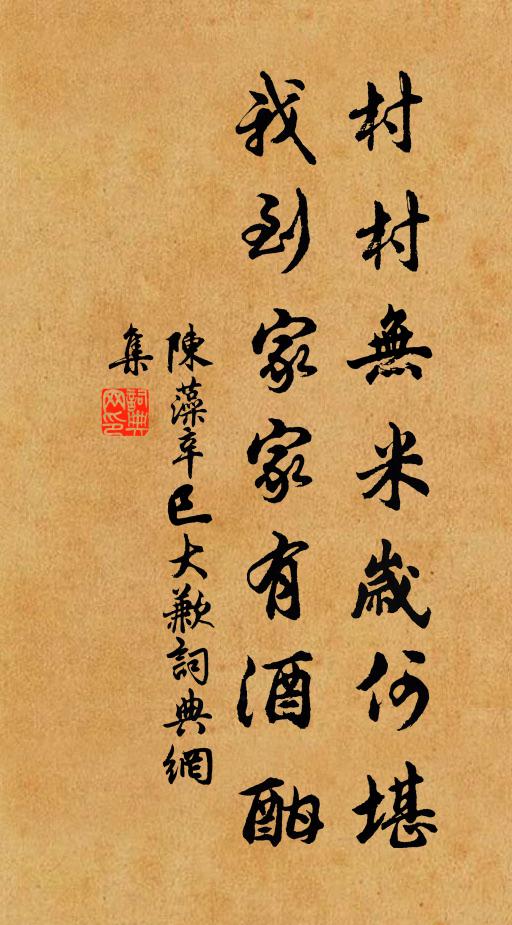 村村無米歲何堪
我到家家有酒酣
陳藻辛巳大歉詞典網
集
詞典
网印